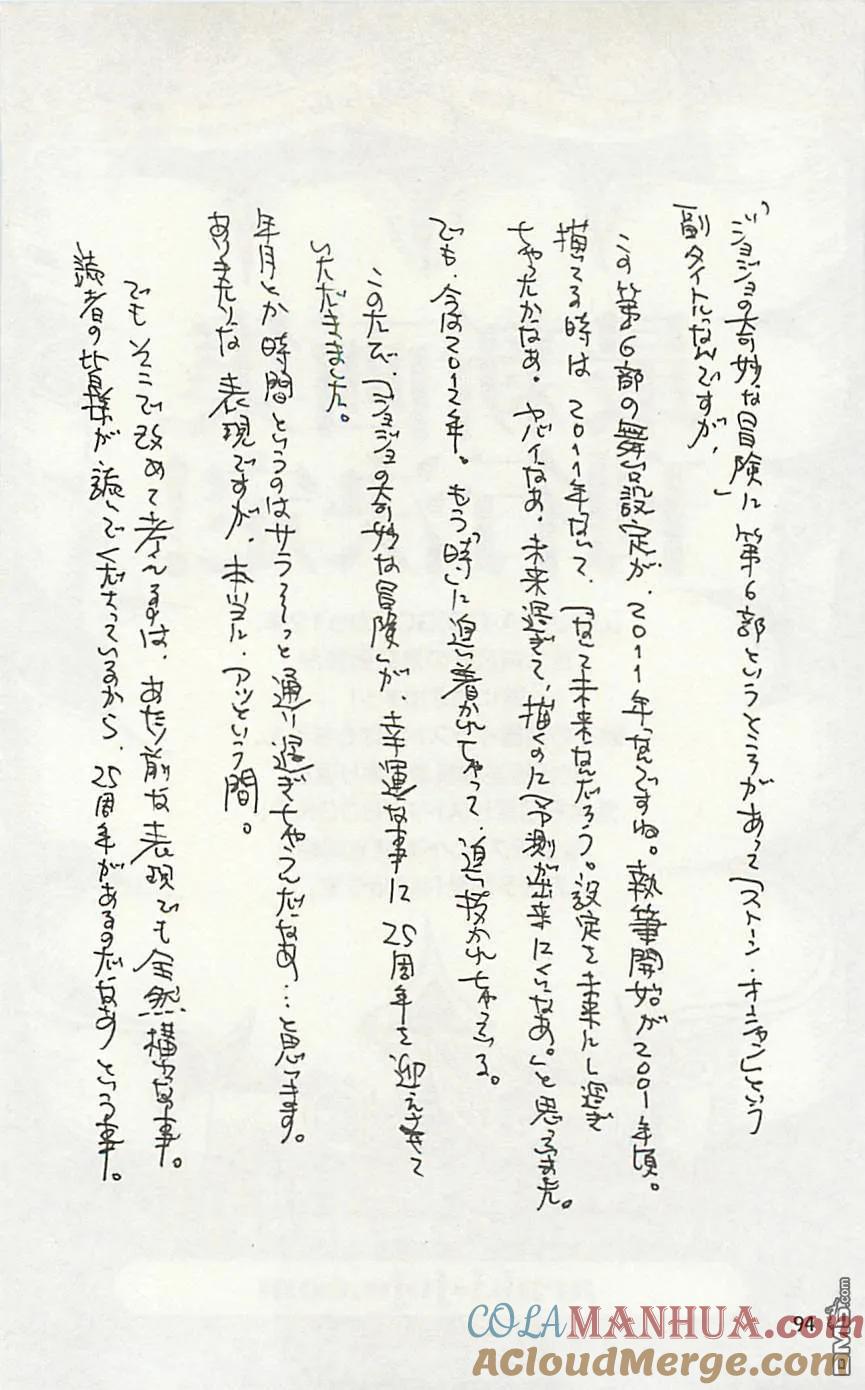 『ジョジョの奇妙な冒険』に第6部というところがあって『ストーン・オーシャン』という
副タイトルなんですが、
この第6部の舞台設定が、2011年なんですね。執筆開始が2001年頃。
描いてる時は2011年なんて、「なんて未来なんだろう。設定を未来にし過ぎ
ちゃったかなぁ。ヤバイなぁ。未来過ぎて、描くのに予測が出来にくいなぁ。」と思ってました。
でも、今は2012年。もう「時」に追い着かれちゃって、追い抜かれちゃってる。
このたび、『ジョジョの奇妙な冒険』が、幸運な事に25周年を迎えさせて
いただきました。
年月とか時間というのはサラ〜っと通り過ぎちゃうんだなあ…と思います。
ありきたりな表現ですが、本当に、アッという間。
でもそこで改めて考えるのは、あたり前な表現でも全然構わない事。
読者の皆様が読んでくださっているから、25周年があるのだなあという事。
94
COLAMANHUA.com
ACloudMerge.com
DM5.com